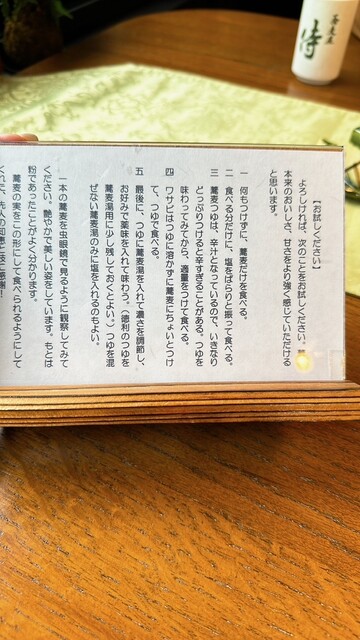 【お試しください】
よろしければ、次のことをお試しください。
本来のおいしさ、甘さをより強く感じていただける
と思います。
一 何もつけずに、蕎麦だけを食べる。
二 食べる分だけに、塩をぱらりと振って食べる。
三 蕎麦つゆは、辛汁となっているので、いきなり
どっぷりつけると辛すぎることがある。つゆを
味わってみてから、適量をつけて食べる。
四 ワサビはつゆに溶かずに蕎麦にちょいとつけ
て、つゆで食べる。
五 最後に、つゆに蕎麦湯を入れて濃さを調節し、
お好みで薬味を入れて味わう。（徳利のつゆを
蕎麦湯用に少し残しておくとよい。）つゆを混
ぜない蕎麦湯のみに塩を入れるのもよい。
一本の蕎麦を虫眼鏡で見るように観察してみて
ください。艶やかで美しい姿をしています。もとは
粉であったことがよく分かります。
蕎麦の実をこの形にして食べられるようにして
くれた、先人の知恵と技に感謝！
蕎麦屋
侍